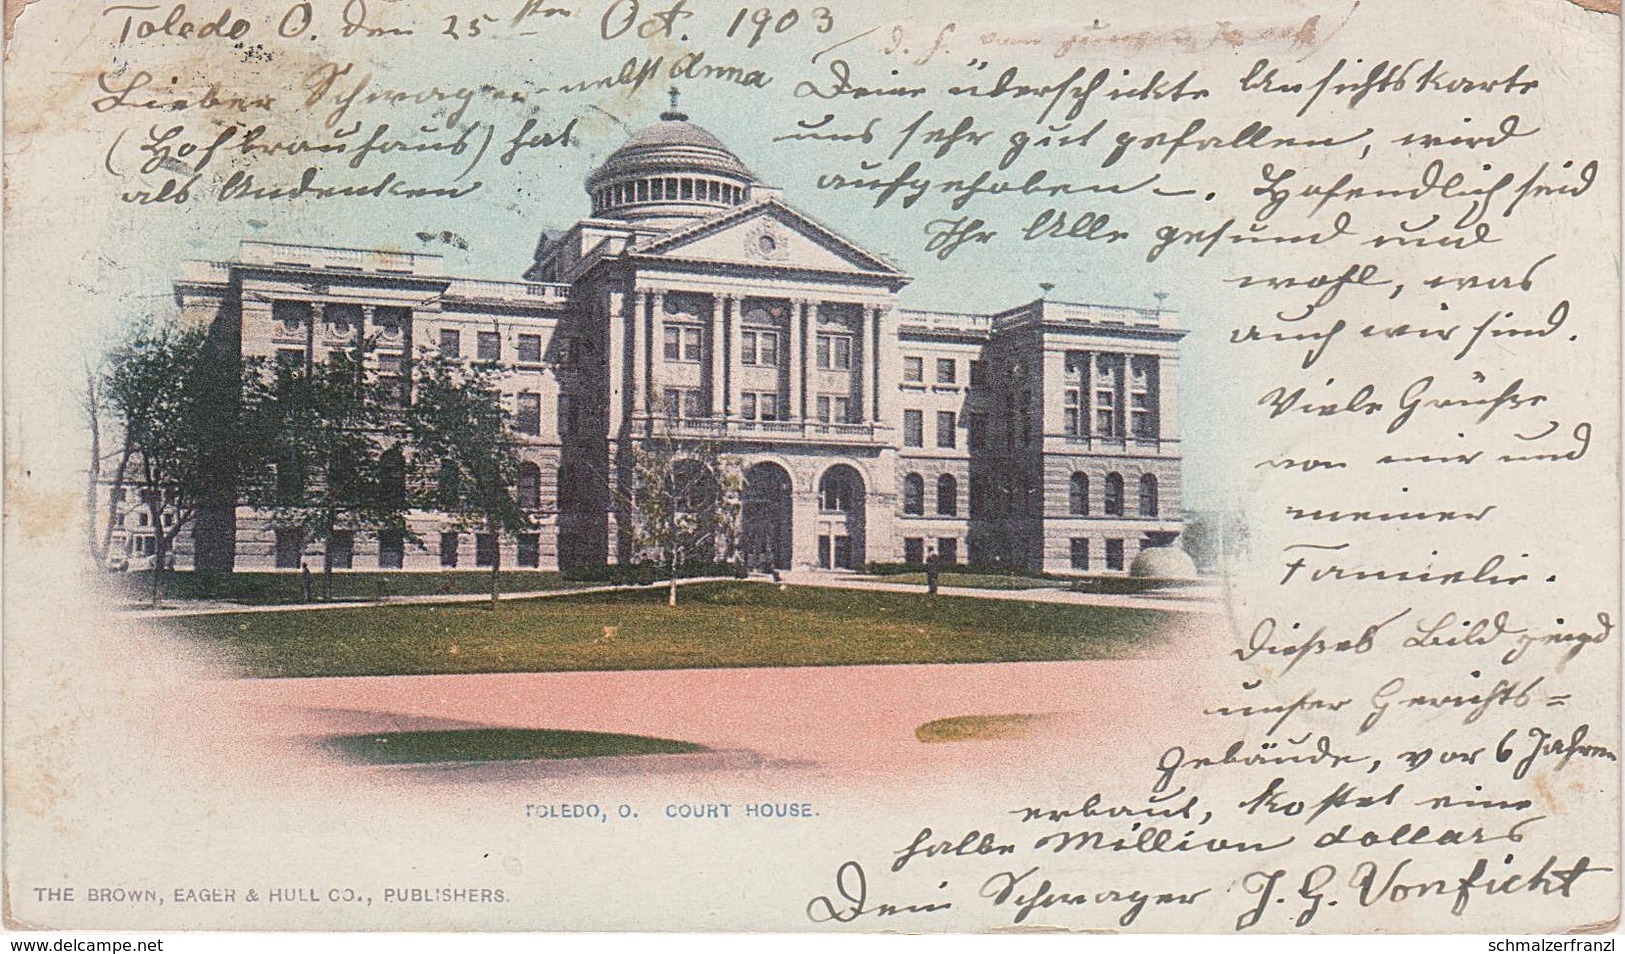 Toledo O. den 25ten Oct. 1903
Lieber Schwager nebst Anna
(Hofbrauhaus) hat
als Andenken
d. h. von
Deine überschickte Ansichtskarte
uns sehr gut gefallen, wird
aufgehoben —. Hofendlich seid
Ihr Alle gesund und
wohl, was
auch wir sind.
Viele Grüße
von mir und
meiner
Famielie.
Dießes Bild zeigd
unser Gerichts=
gebäude, vor 6 Jahren
erbaut, kostet eine
halbe Million dollars
Dein Schwager J. G. Vonficht
TOLEDO, O. COURT HOUSE.
THE BROWN, EAGER & HULL CO., PUBLISHERS.
www.delcampe.net
schmalzerfranzl